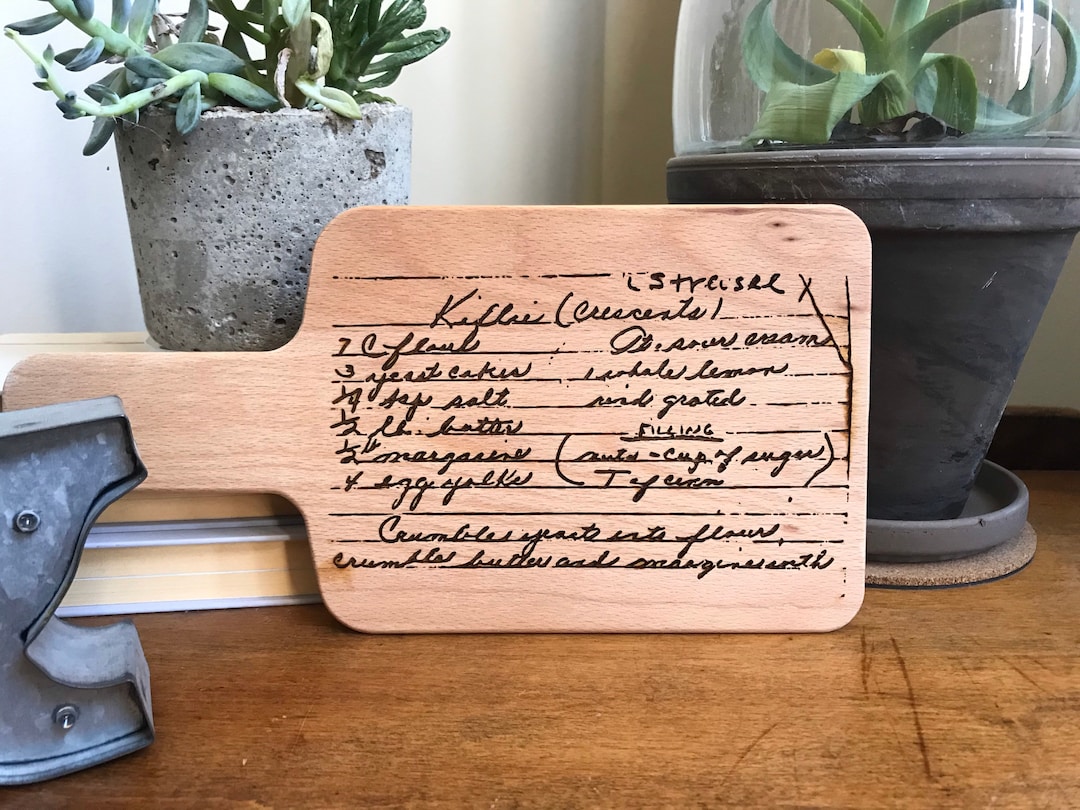 ( Streisel
Kiflie (Crescents)
7 C flour
3 yeast cakes
1/4 tsp salt
1/2 lb. butter
1/2 " margarine
4 egg yolks
Pt. sour cream
1 whole lemon
rind grated
FILLING
(nuts - cup of sugar)
Crumble yeast into flour,
crumble butter and margarine with